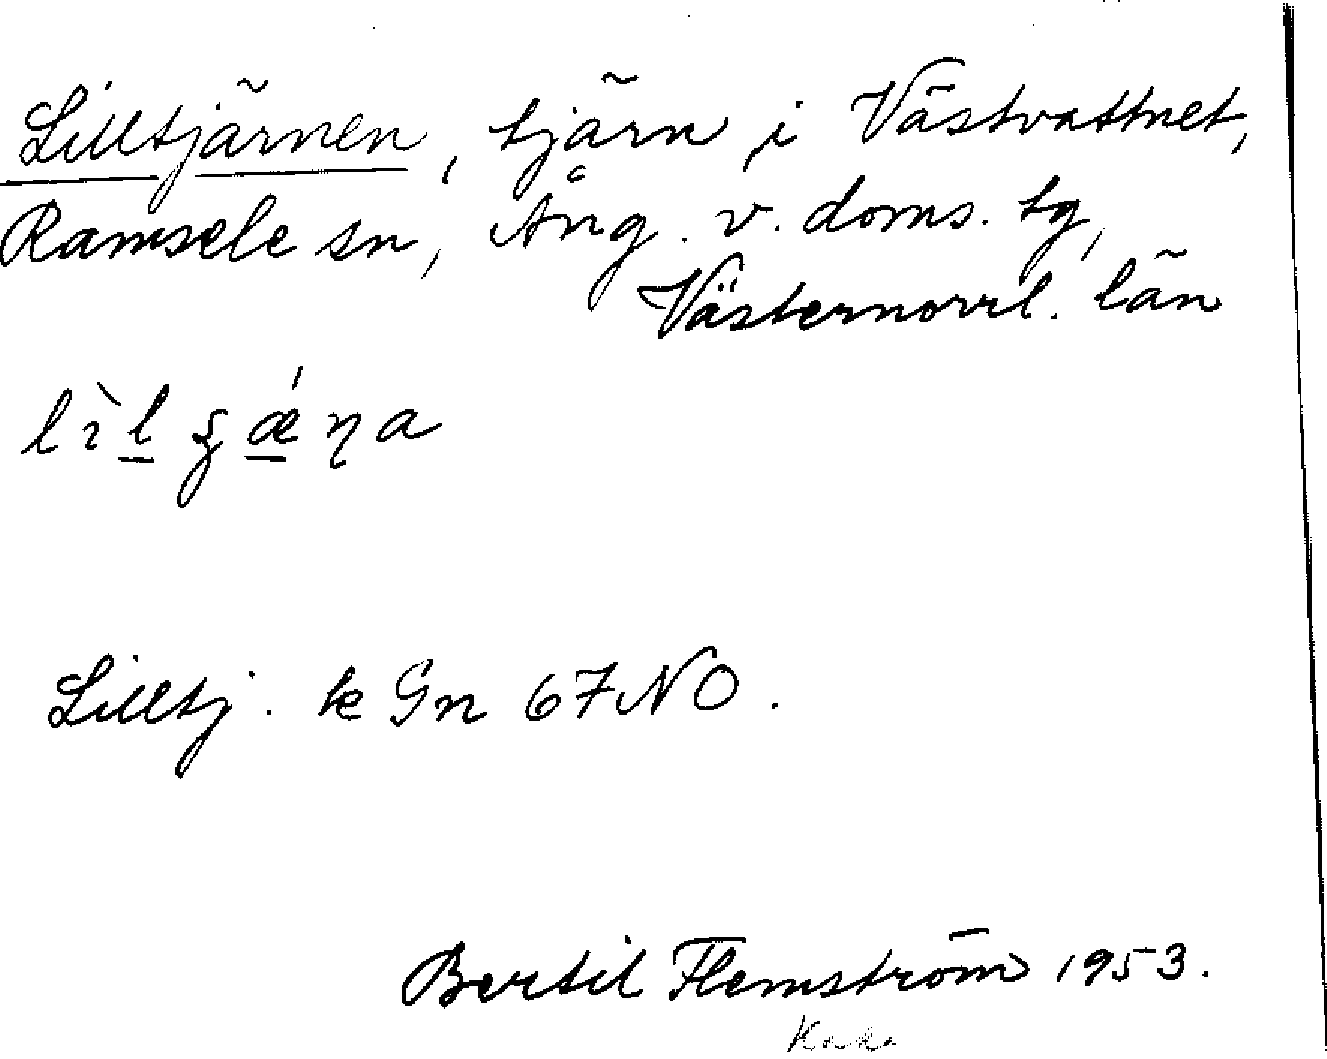 Lilltjärnen, tjärn i Västvattnet,
Ramsele sn, Ång. v. doms. tg,
Västernorrl. län
Lilltj. k Gn 67 NO.
Bertil Flemström 1953.